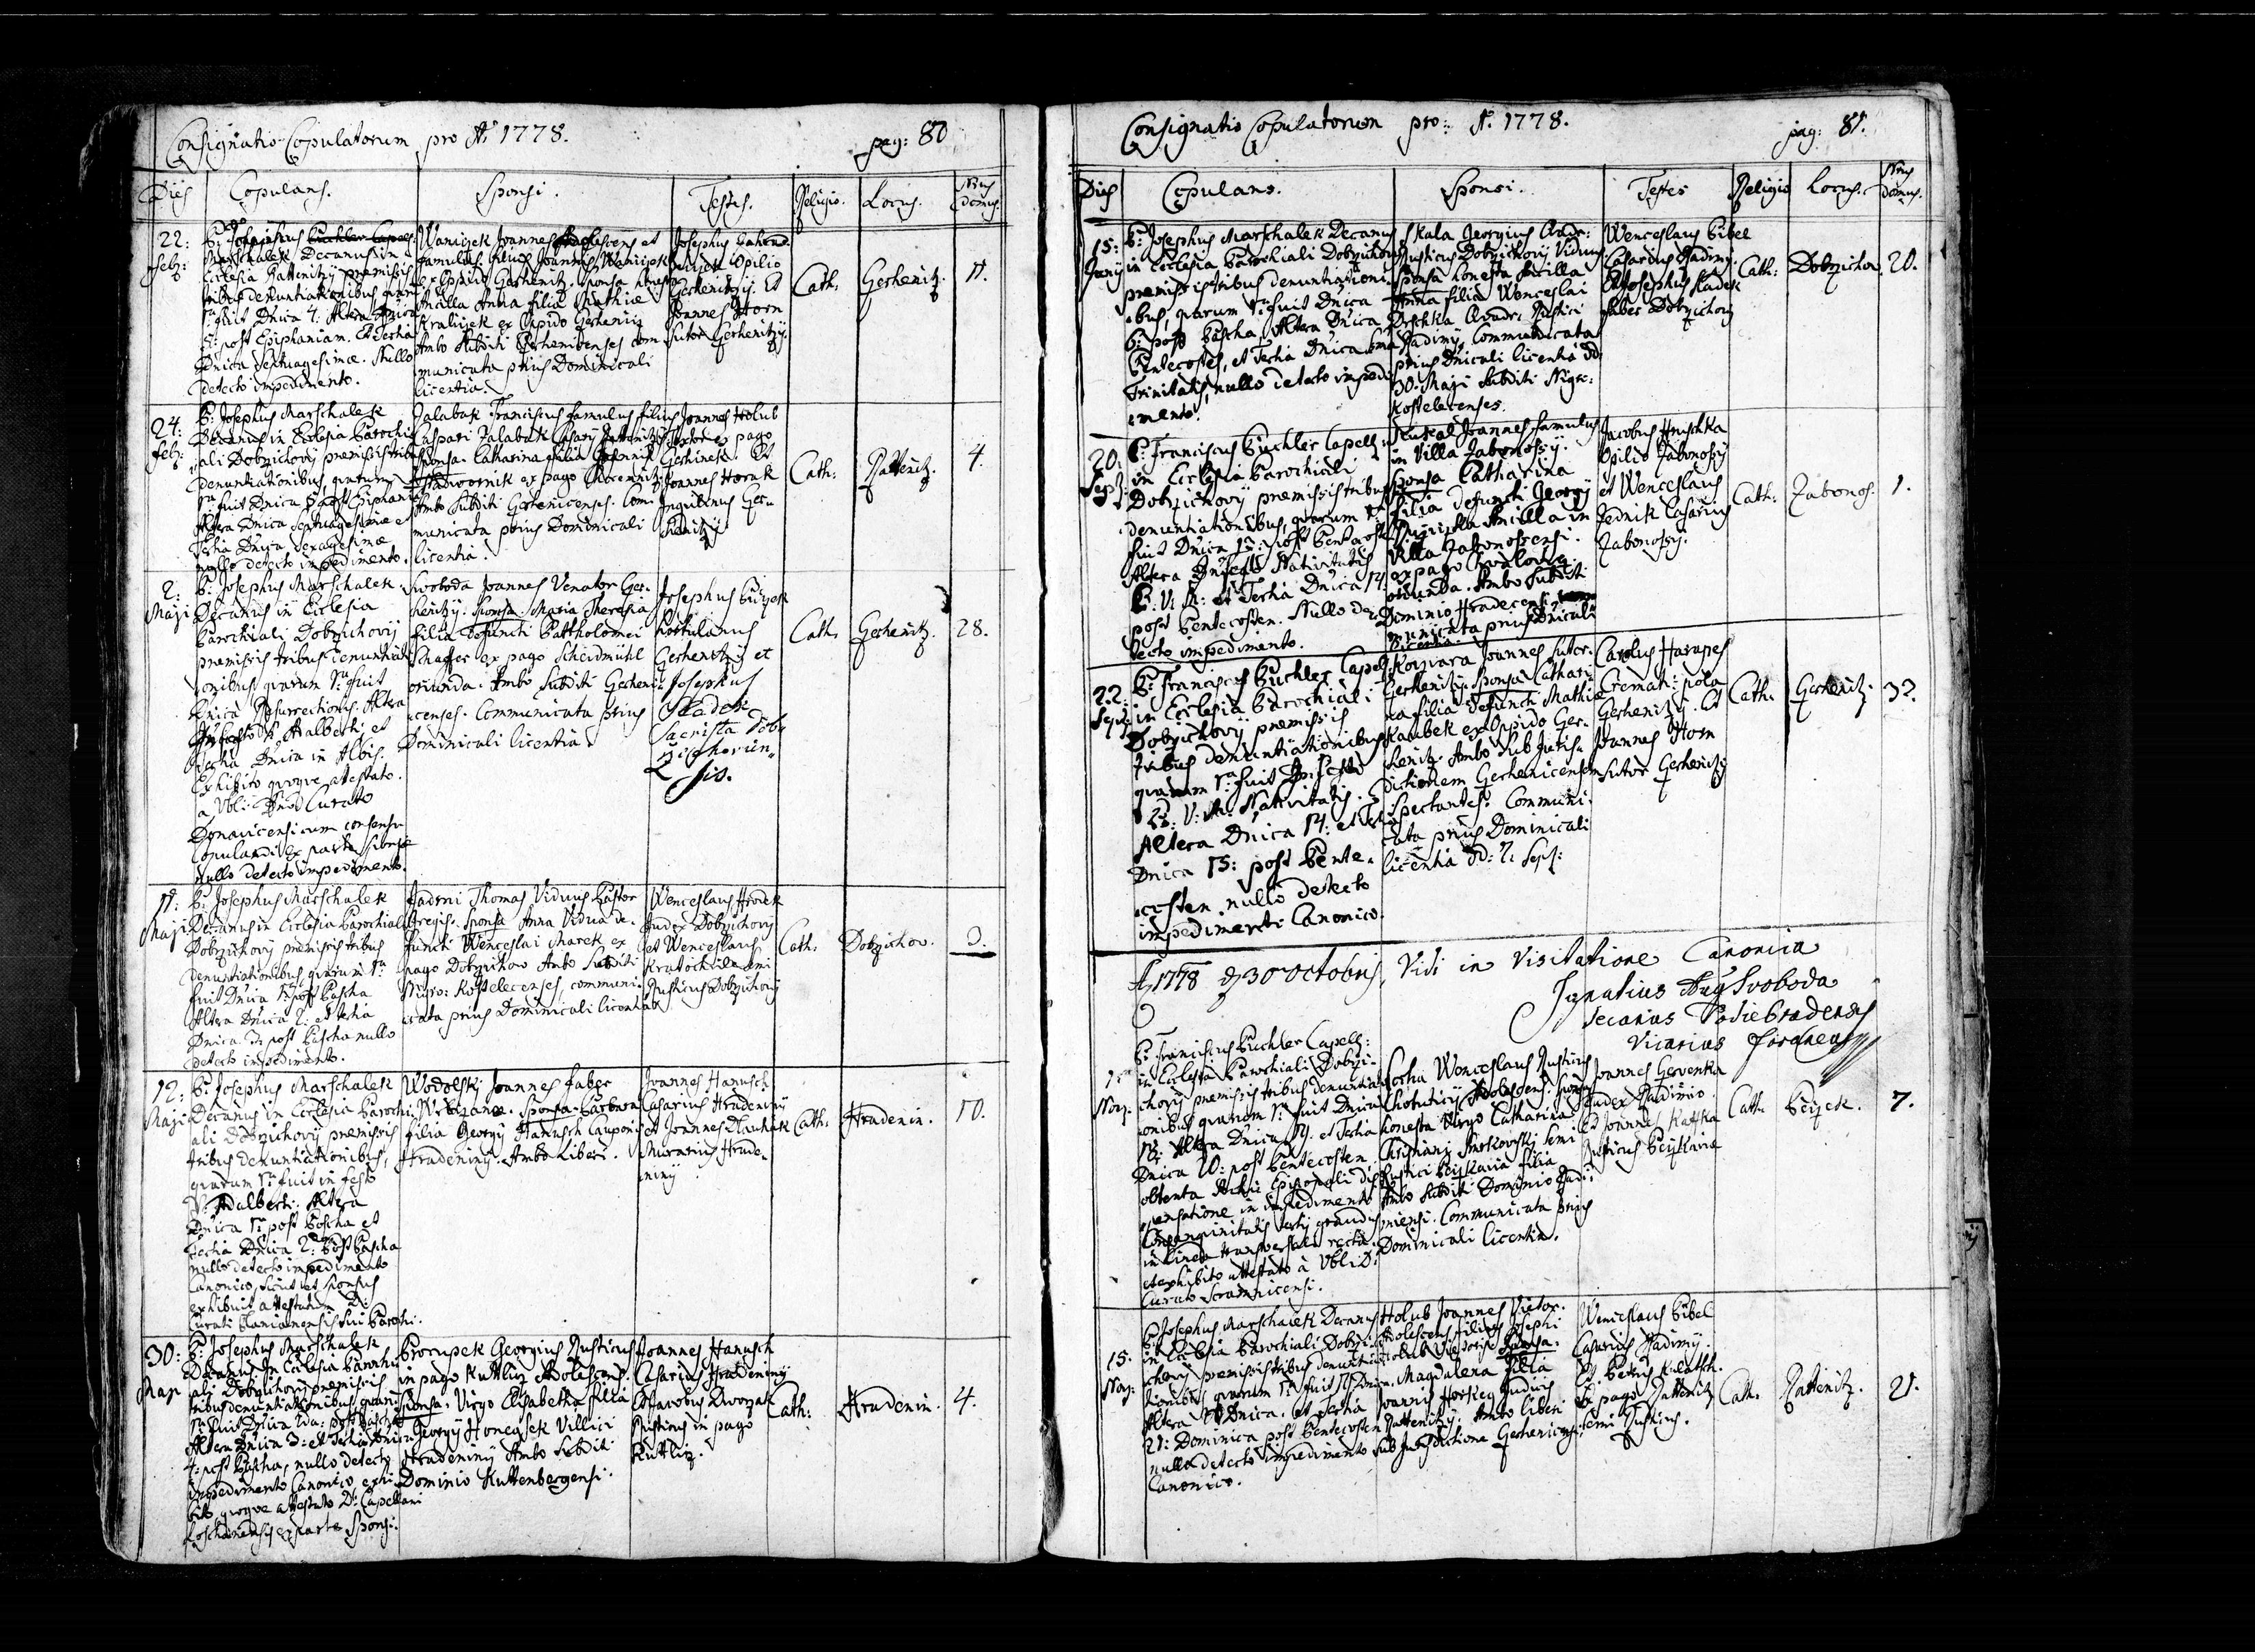 Consignatio Copulatorum pro Aº 1778. pag: 80
Dies Copulans. Sponsi. Testes. Religio. Locus. Nrus domus.
22:
Feb:
Marschalek Decanus in
Ecclesia Rattenitzy premissis
tribus denuntiationibus quarum
1ma fuit Dnica 4: Altera Dnica
5: post Epiphaniam. Et Tertia
Dnica Septuagesimæ. Nullo
detecto impedimento.
Waniczek Joannes Adolescens et
famulus filius Joannis Waniczek
ex Oppido Gerhenitz. Sponsa
Ancilla Anna filia Mathiæ
Kraliczek ex Opido Gerhenitz
Ambo Subditi Gerhenicenses com
municata prius Dominicali
licentia.
Josephus
Opilio
Gerhenitzij. Et
Joannes Horn
Sutor Gerhenitzij.
Cath: Gerhenitz. 11.
24:
Feb:
P: Josephus Marschalek
Decanus in Ecclesia Parochi
ali Dobrzichovij premissis tribus
denuntiationibus, quarum
1ma fuit Dnica 5 post Epiphaniam
Altera Dnica Septuagesimæ et
Tertia Dnica Sexagesimæ
nullo detecto impedimento.
Zalabak Franciscus famulus filius
Caspari Zalabak
Sponsa Catharina filia
ex pago
Ambo Subditi Gerhenicenses. Com
municata prius Dominicali
licentia.
Joannes Holub
Textor ex pago
Gerhinek. Et
Joannes Horak
Inquilinus Ger-
henitzij.
Cath: Rattenitz. 4.
2:
Maji
P: Josephus Marschalek
Decanus in Ecclesia
Parochiali Dobrzichovij
premissis tribus denuntiati
onibus quarum 1ma fuit
Dnica Resurrectionis. Altera
S. Adalberti, et
tertia Dnica in Albis.
Exhibito quoque attestato
a Vbli: Dno Curato
Donavicensi cum consensu
Copulandi ex parte Sponsæ
nullo detecto impedimento.
Swoboda Joannes Venator Ger-
henitzy. Sponsa. Maria Theresia
filia defuncti Bartholomei
Schaffer ex pago Scheidmühl
oriunda. Ambo Subditi Gerheni-
censes. Communicata prius
Dominicali licentia.
Josephus
Hortulanus
Gerhenitzij et
Josephus
Kadek
Sacrista Dob-
rzichovien-
sis.
Cath: Gerhenitz. 28.
11:
Maji
P: Josephus Marschalek
Decanus in Ecclesia Parochiali
Dobrzichovij premissis tribus
denuntiationibus quarum 1ma
fuit Dnica 1: post Pascha
Altera Dnica 2: et Tertia
Dnica 3: post Pascha nullo
detecto impedimento.
Jadrni Thomas Viduus Pastor
Gregis. Sponsa Anna Vidua de-
functi Wenceslai Marek ex
pago Dobrzichow Ambo Subditi
Nigro: Kostelecenses, communi-
cata prius Dominicali licentia
Wenceslaus Hradek
Judex Dobrzichovij
et Wenceslaus
Kratochwile semi
Rusticus Dobrzichovij
Cath: Dobrzichow. 3.
12:
Maji
P: Josephus Marschalek
Decanus in Ecclesia Parochi
ali Dobrzichovij premissis
tribus denuntiationibus,
quarum 1ma fuit in festo
S. Adalberti. Altera
Dnica 1ma post Pascha et
Tertia Dnica 2: Post Pascha
nullo detecto impedimento
Canonico, sicut et Sponsus
exhibuit attestatum D:
Curati Planianensis sui Parochi.
Wodolsky Joannes faber
Wrbczanæ. Sponsa Barbara
filia Georgij Hanusch Cauponis
Hradeninij. Ambo Liberi.
Joannes Hanusch
Casarius Hradeninij
et Joannes Dlauhak
Murarius Hrade-
ninij
Cath: Hradenin. 10.
30:
Maji
P: Josephus Marschalek
Decanus in Ecclesia Parochi
ali Dobrzichovij premissis
tribus denuntiationibus, quarum
1ma fuit Dnica 2da: post Pascha
Altera Dnica 3: et Tertia Dnica
4: post Pascha, nullo detecto
impedimento Canonico, exhi-
bito quoque attestato D: Capellani
ex parte Sponsi.
Procupek Georgius Rusticus
in pago Kuttlirz Adolescens.
Sponsa. Virgo Elisabetha filia
Georgij Honegsek Villici
Hradeninij Ambo Subditi
Dominio Kuttenbergensi.
Joannes Hanusch
Casarius Hradeninij
Et Jacobus Dworzak
Rusticus in pago
Kuttlirz.
Cath: Hradenin. 4.
Consignatio Copulatorum pro: A: 1778. pag: 81.
Dies Copulans. Sponsi. Testes Religio Locus. Nrus domus.
15:
Junij
P: Josephus Marschalek Decanus
in Ecclesia Parochiali Dobrzichovij
premissis tribus denuntiationi-
bus, quarum 1ma fuit Dnica
6: post Pascha, Altera Dnica
Pentecostes, et Tertia Dnica SSmæ
Trinitatis, nullo detecto impedi-
mento.
Skala Georgius Quadr:
Rusticus Dobrzichovij Viduus
Sponsa honesta Ancilla
Anna filia Wenceslai
Quadr: Rustici
Radimij, Communicata
prius Dnicali licentia dd:
30: Maji Subditi Nigro:
Kostelecenses.
Wenceslaus Bibel
Casarius Radimij.
Et Josephus Kadek
faber Dobrzichovij
Cath: Dobrzichow. 20.
20:
Sept:
P: Franciscus Püchler Capell:
in Ecclesia Parochiali
Dobrzichovij premissis tribus
denuntiationibus, quarum 1ma
fuit Dnica 13: post Pentecosten
Altera Nativitatis
B: V: M: et Tertia Dnica 14
post Pentecosten. Nullo de-
tecto impedimento.
Kukal Joannes famulus
in Villa Zabonossij.
Sponsa Catharina
filia defuncti Georgij
Ancilla in
Villa Zabonossensi.
ex pago
oriunda. Ambo Subditi
Dominio Hradecensi,
municata prius Dnicali
licentia.
Jacobus Hruschka
Opilio Zabonossij
et Wenceslaus
Jednik Casarius
Zabonossij.
Cath: Zabonos. 1.
22:
Sept:
P: Franciscus Püchler Capell:
in Ecclesia Parochiali
Dobrzichovij premissis
tribus denuntiationibus
quarum 1ma fuit In festo
B: V: M: Nativitatis.
Altera Dnica 14: et Tertia
Dnica 15: post Pente-
costen nullo detecto
impedimento Canonico.
Joannes Sutor
Gerhenitzij. Sponsa Cathari-
na filia defuncti Mathiæ
Kaubek ex Oppido Ger-
henitz. Ambo Sub Juris-
dictionem Gerhenicensem
Spectantes. Communi-
cata prius Dominicali
licentia dd: 7: Sept:
Carolus Harapes
Gerhenitzij. Et
Joannes Horn
Sutor Gerhenitzij
Cath: Gerhenitz. 32.
A 1778 d 30 Octobris, Vidi in Visitatione Canonica
Ignatius Aug Svoboda
Decanus Podiebradensis
Vicarius foraneus
Nov:
P: Franciscus Püchler Capell:
in Ecclesia Parochiali Dobrzi-
chovij premissis tribus denuntiati
onibus quarum 1ma fuit Dnica
18: Altera Dnica 19. et Tertia
Dnica 20: post Pentecosten,
obtenta Archi Episcopali dis-
pensatione in impedimento
Consanguinitatis tertij gradus
in linea transversali
et exhibito attestato à Vbli D:
Curato
Wenceslaus Rusticus
Chotuticij Adolescens. Sponsa
honesta Virgo Catharina
Christiani Smrkovsky Semi
Rustici filia
Ambo Subditi Dominio Radi-
mensi. Communicata prius
Dominicali licentia.
Joannes Gervenka
Judex Radimio
et Joannes Katka
Rusticus
Cath: Pecziek. 7.
15.
Nov:
P: Josephus Marschalek Decanus
in Ecclesia Parochiali Dobrzi-
chovij premissis tribus denuntia
tionibus quarum 1ma fuit
Altera Dnica. et Tertia
21: Dominica post Pentecosten
nullo detecto impedimento
Canonico.
Holub Joannes Victor.
Adolescens filius Josephi
Holub Sponsa.
Magdalena filia
Joannis Horkey Judicis
Rattenitzij. Ambo liberi
Sub Jurisdictione Gerhenicensi.
Wenceslaus Bibel
Casarius Radimij.
Et Petrus
ex pago Rattenitz
semi Rusticus.
Cath: Rattenitz. 21.